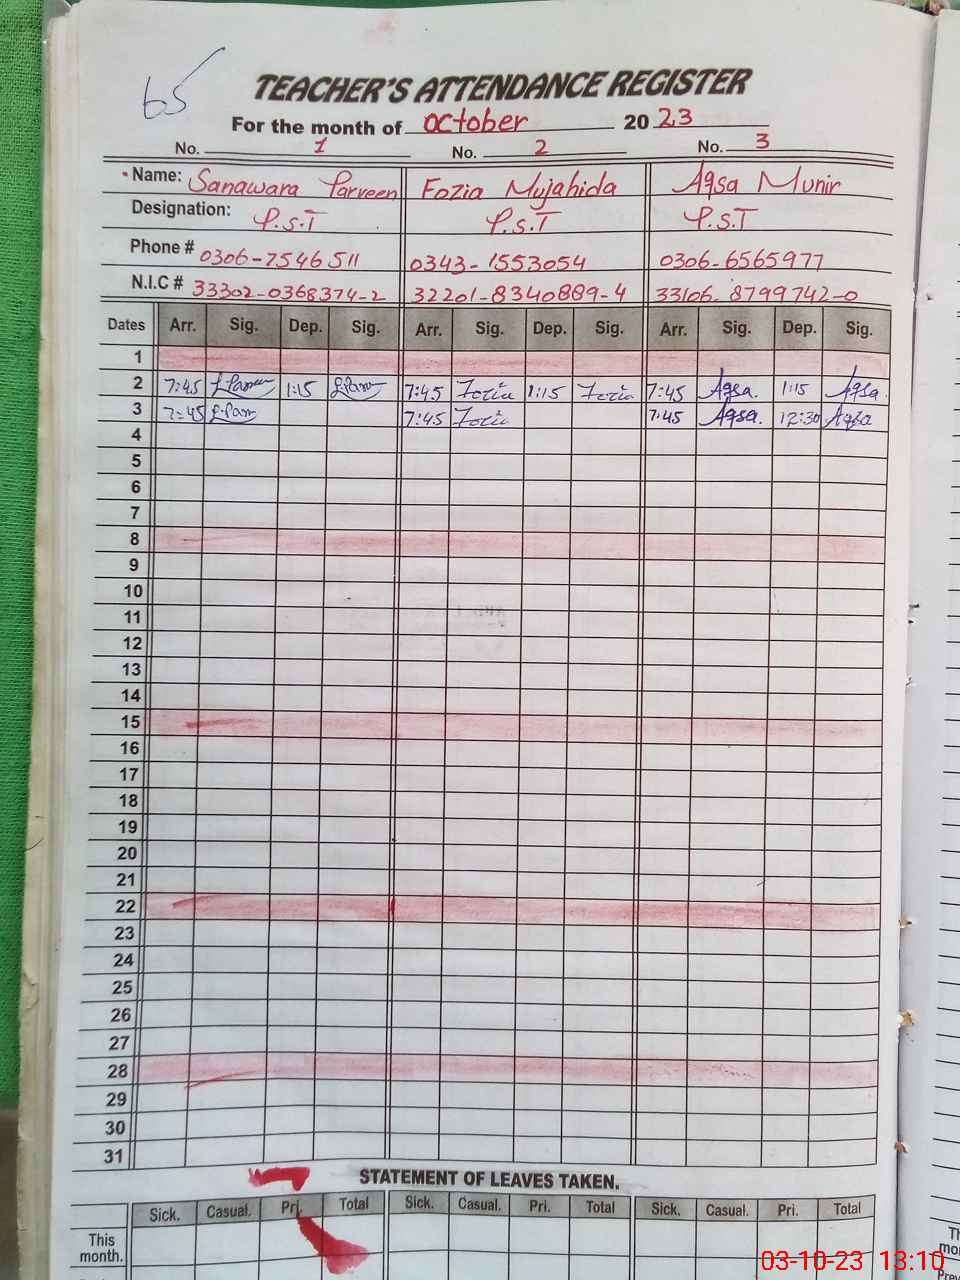 65
TEACHER'S ATTENDANCE REGISTER
For the month of October 2023
No. 1 No. 2 No. 3
Name: Sanawara Parveen Fozia Mujahida Aqsa Munir
Designation: P.S.T P.S.T P.S.T
Phone # 0306-7546511 0343-1553054 0306-6565977
N.I.C # 33302-0368374-2 32201-8340889-4 33106-8799742-0
Dates Arr. Sig. Dep. Sig. Arr. Sig. Dep. Sig. Arr. Sig. Dep. Sig.
1
2 7:45 S.Parveen 1:15 S.Parv 7:45 Fozia 1:15 Fozia 7:45 Aqsa. 1:15 Aqsa.
3 7:45 S.Parv 7:45 Fozia 7:45 Aqsa. 12:30 Aqsa
4
5
6
7
8
9
10
11
12
13
14
15
16
17
18
19
20
21
22
23
24
25
26
27
28
29
30
31
STATEMENT OF LEAVES TAKEN.
Sick. Casual. Pri. Total Sick. Casual. Pri. Total Sick. Casual. Pri. Total
This
month.
03-10-23 13:10